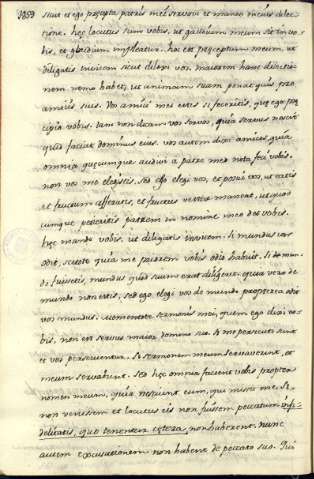 1053 sicut et ego præcepta patris mei servavi et maneo in eius dilec
tione. hæc locutus sum vobis, ut gaudium meum sit in vo
bis, et gaudium impleatur. hoc est præceptum meum, ut
diligatis invicem sicut dilexi vos. maiorem hanc dilectio
nem nemo habet, ut animam suam ponat quis pro
amicis suis. Vos amici mei estis si feceritis, quæ ego præ
cipio vobis. iam non dicam vos servos, quia servus nescit
quid faciat dominus eius. vos autem dixi amicos, quia
omnia quæcumque audivi a patre meo nota feci vobis.
non vos me elegistis, sed ego elegi vos, et posui vos, ut eatis
et fructum afferatis, et fructus vester maneat, ut quod
cumque petieritis patrem in nomine meo det vobis.
hæc mando vobis, ut diligatis invicem. si mundus vos
odit, scitote quia me priorem vobis odio habuit. si de mun
do fuissetis, mundus quod suum erat diligeret, quia vero de
mundo non estis, sed ego elegi vos de mundo propterea odit
vos mundus. mementote sermonis mei, quem ego dixi vo
bis, non est servus maior domino suo. si me persecuti sunt
et vos persequentur. si sermonem meum servaverunt, et
vestrum servabunt. sed hæc omnia facient vobis propter
nomen meum, quia nesciunt eum, qui misit me. si
non venissem et locutus eis non fuissem peccatum infi
delitatis, quo tenentur cætera, non haberent. nunc
autem excusationem non habent de peccato suo. Qui